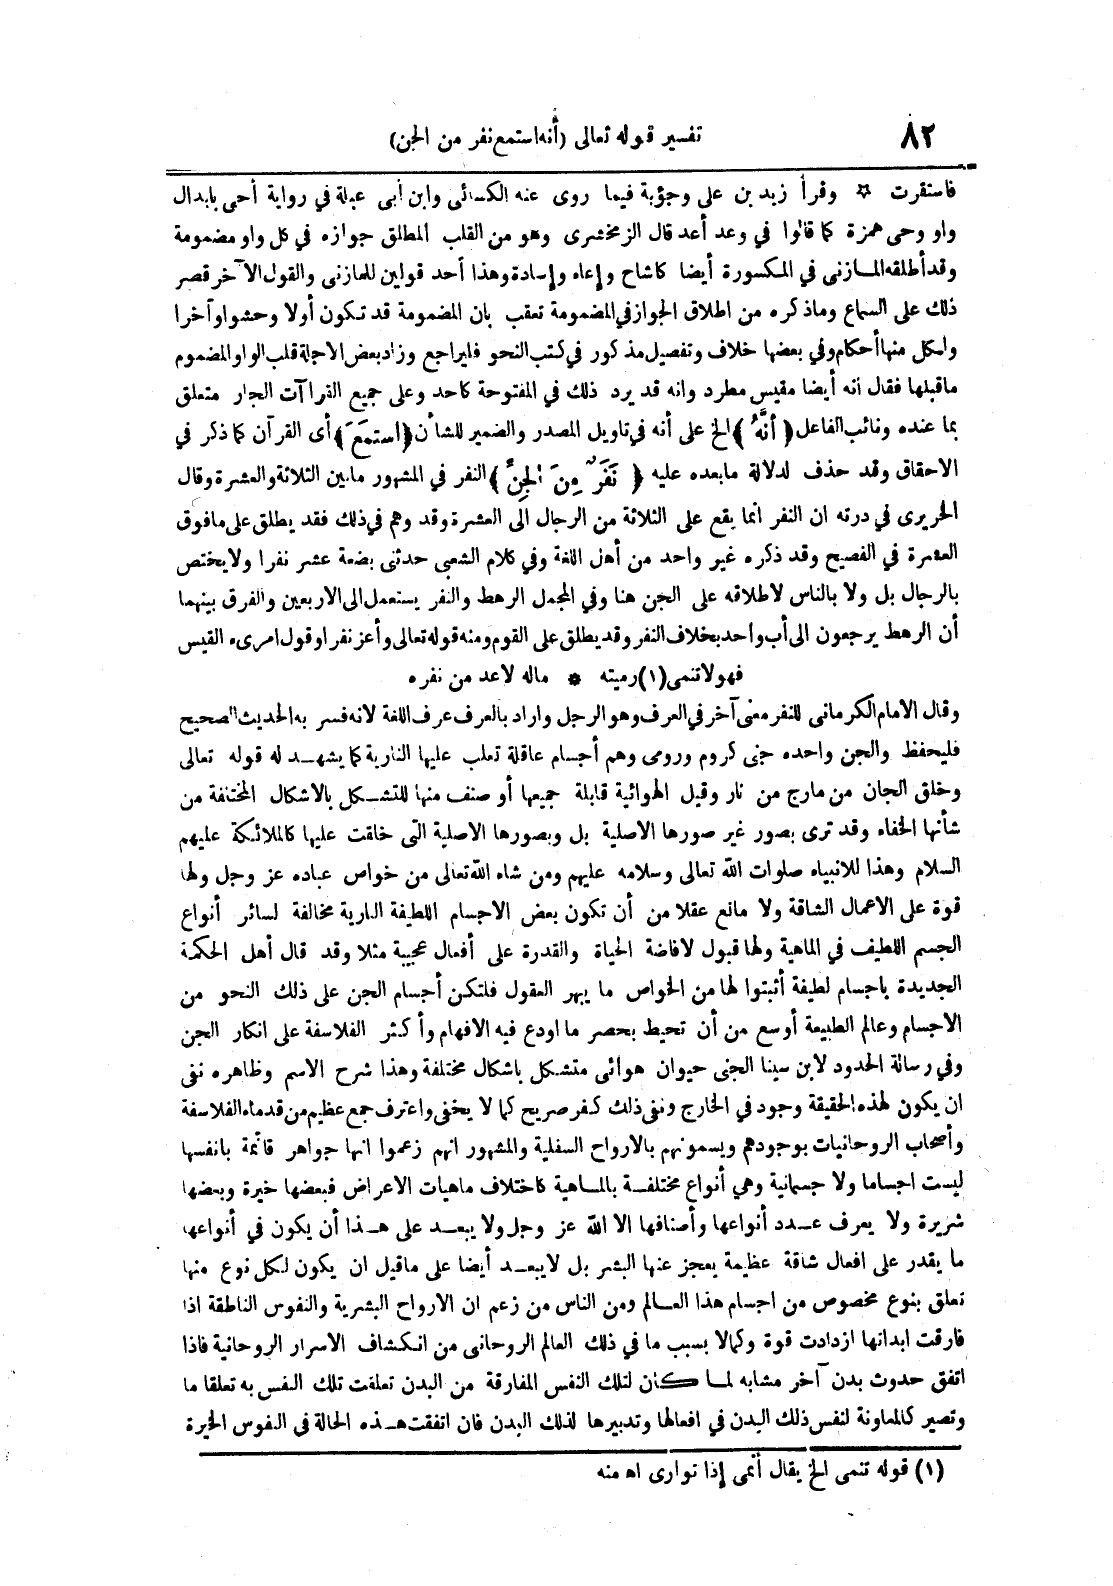 ٨٢
تفسير قوله تعالى (أنه استمع نفر من الجن)
فاستقرت * وقرأ زيد بن على وجؤية فيما روى عنه الكسائى وابن أبى عبلة في رواية أحى بابدال
واو وحى همزة كما قالوا في وعد أعد قال الزمخشرى وهو من القلب المطلق جوازه في كل واو مضمومة
وقد أطلقه المازنى في المكسورة أيضا كاشاح وإعاء وإسادة وهذا أحد قولين للمازنى والقول الآخر قصر
ذلك على السماع وماذكره من اطلاق الجواز في المضمومة تعقب بان المضمومة قد تكون أولا وحشوا وآخرا
ولكل منها أحكام وفي بعضها خلاف وتفصيل مذكور في كتب النحو فليراجع وزاد بعض الاجلة قلب الواو المضموم
ماقبلها فقال انه أيضا مقيس مطرد وانه قد يرد ذلك في المفتوحة كاحد وعلى جميع القراآت الجار متعلق
بما عنده ونائب الفاعل ﴿أَنَّهُ﴾ الخ على أنه في تاويل المصدر والضمير للشأن ﴿اسْتَمَعَ﴾ أى القرآن كما ذكر في
الاحقاق وقد حذف لدلالة مابعده عليه ﴿نَفَرٌ مِنَ الْجِنِّ﴾ النفر في المشهور مابين الثلاثة والعشرة وقال
الحريرى في درته ان النفر انما يقع على الثلاثة من الرجال الى العشرة وقد وهم في ذلك فقد يطلق على مافوق
العشرة في الفصيح وقد ذكره غير واحد من أهل اللغة وفي كلام الشعبى حدثنى بضعة عشر نفرا ولا يختص
بالرجال بل ولا بالناس لاطلاقه على الجن هنا وفي المجمل الرهط والنفر يستعمل الى الاربعين والفرق بينهما
أن الرهط يرجعون الى أب واحد بخلاف النفر وقد يطلق على القوم ومنه قوله تعالى وأعز نفر او قول امرىء القيس
فهو لا تنمى (١) رميته * ماله لاعد من نفره
وقال الامام الكرمانى للنفر معنى آخر في العرف وهو الرجل واراد بالعرف عرف اللغة لانه فسر به الحديث الصحيح
فليحفظ والجن واحده جنى كروم ورومى وهم أجسام عاقلة تغلب عليها النارية كما يشهد له قوله تعالى
وخلق الجان من مارج من نار وقيل الهوائية قابلة جميعها أو صنف منها للتشكل بالاشكال المختلفة من
شأنها الخفاء وقد ترى بصور غير صورها الاصلية بل وبصورها الاصلية التى خلقت عليها كالملائكة عليهم
السلام وهذا للانبياء صلوات الله تعالى وسلامه عليهم ومن شاء الله تعالى من خواص عباده عز وجل ولها
قوة على الاعمال الشاقة ولا مانع عقلا من أن تكون بعض الاجسام اللطيفة النارية مخالفة لسائر أنواع
الجسم اللطيف في الماهية ولها قبول لافاضة الحياة والقدرة على أفعال عجيبة مثلا وقد قال أهل الحكمة
الجديدة باجسام لطيفة أثبتوا لها من الخواص ما يبهر العقول فلتكن أجسام الجن على ذلك النحو من
الاجسام وعالم الطبيعة أوسع من أن تحيط بحصر ما اودع فيه الافهام وأكثر الفلاسفة على انكار الجن
وفي رسالة الحدود لابن سينا الجنى حيوان هوائى متشكل باشكال مختلفة وهذا شرح الاسم وظاهره نفى
ان يكون لهذه الحقيقة وجود في الخارج ونفى ذلك كفر صريح كما لا يخفى واعترف جمع عظيم من قدماء الفلاسفة
وأصحاب الروحانيات بوجودهم ويسمونهم بالارواح السفلية والمشهور انهم زعموا انها جواهر قائمة بانفسها
ليست اجساما ولا جسمانية وهي أنواع مختلفة بالماهية كاختلاف ماهيات الاعراض فبعضها خيرة وبعضها
شريرة ولا يعرف عدد أنواعها وأصنافها الا الله عز وجل ولا يبعد على هذا أن يكون في أنواعها
ما يقدر على افعال شاقة عظيمة يعجز عنها البشر بل لا يبعد أيضا على ماقيل ان يكون لكل نوع منها
تعلق بنوع مخصوص من اجسام هذا العالم ومن الناس من زعم ان الارواح البشرية والنفوس الناطقة اذا
فارقت ابدانها ازدادت قوة وكمالا بسبب ما في ذلك العالم الروحانى من انكشاف الاسرار الروحانية فاذا
اتفق حدوث بدن آخر مشابه لما كان لتلك النفس المفارقة من البدن تعلقت تلك النفس به تعلقا ما
وتصير كالمعاونة لنفس ذلك البدن في افعالها وتدبيرها لذلك البدن فان اتفقت هذه الحالة فى النفوس الخيرة
(١) قوله تنمى الخ يقال أنمى إذا توارى اه منه